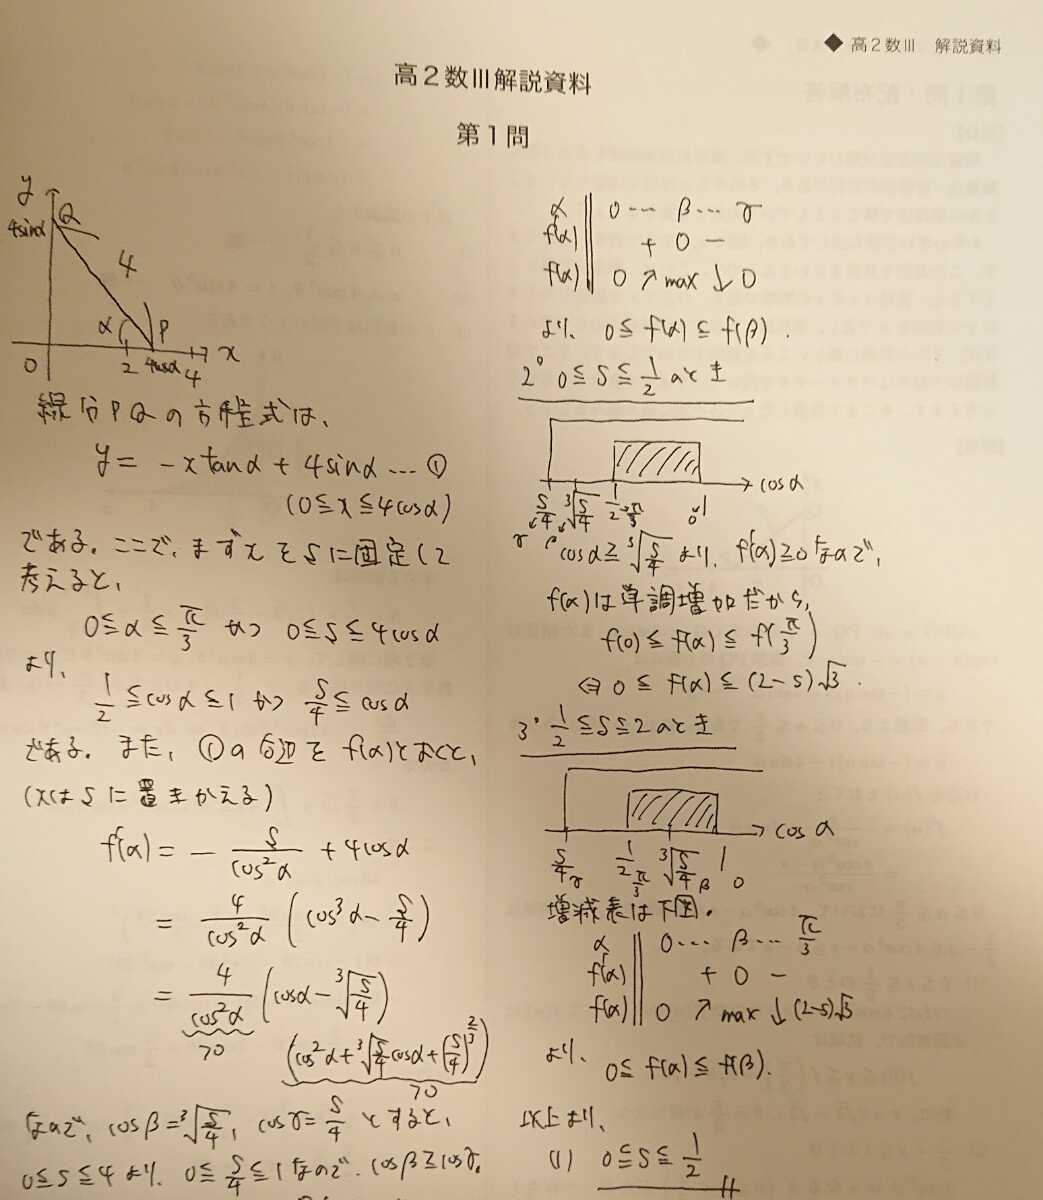 ◆ 高2数III 解説資料
高2数III解説資料
第1問
y
4sinα
Q
4
α
P
0
2
4cosα
4
x
線分PQの方程式は、
y = -xtanα + 4sinα … ①
(0≦x≦4cosα)
である。ここで、まずxをsに固定して
考えると、
0≦α≦π/3 かつ 0≦s≦4cosα
より、
1/2≦cosα≦1 かつ s/4≦cosα
である。また、①の右辺をf(α)とおくと、
(xはsに置きかえる)
f'(α) = - s/cos²α + 4cosα
= 4/cos²α (cos³α - s/4)
= 4/cos²α (cosα - ³√(s/4))
>0
(cos²α + ³√(s/4) cosα + (s/4)^(2/3))
>0
なので、cosβ = ³√(s/4), cosγ = s/4 とすると、
0≦s≦4より、0≦s/4≦1なので、cosβ≧cosγ.
α 0 … β … γ
f'(α) + 0 -
f(α) 0 ↗ max ↓ 0
より、0≦f(α)≦f(β).
2° 0≦s≦1/2のとき
s/4 ³√(s/4) 1/2 π/3 1 0 cosα
γ β
cosα≧³√(s/4) より、f'(α)≧0なので、
f(α)は単調増加だから、
f(0)≦f(α)≦f(π/3)
⇔ 0≦f(α)≦(2-s)√3.
3° 1/2≦s≦2のとき
s/4 γ 1/2 π/3 ³√(s/4) β 1 0 cosα
増減表は下図。
α 0 … β … π/3
f'(α) + 0 -
f(α) 0 ↗ max ↓ (2-s)√3
より、0≦f(α)≦f(β).
以上より、
(1) 0≦s≦1/2